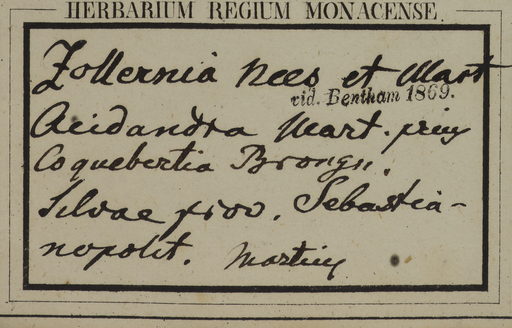 HERBARIUM REGIUM MONACENSE.
Zollernia Nees et Mart
vid. Bentham 1869.
Acidandra Mart. prius
Coquebertia Brongn.
Silvae prov. Sebastia-
nopolit. Martius